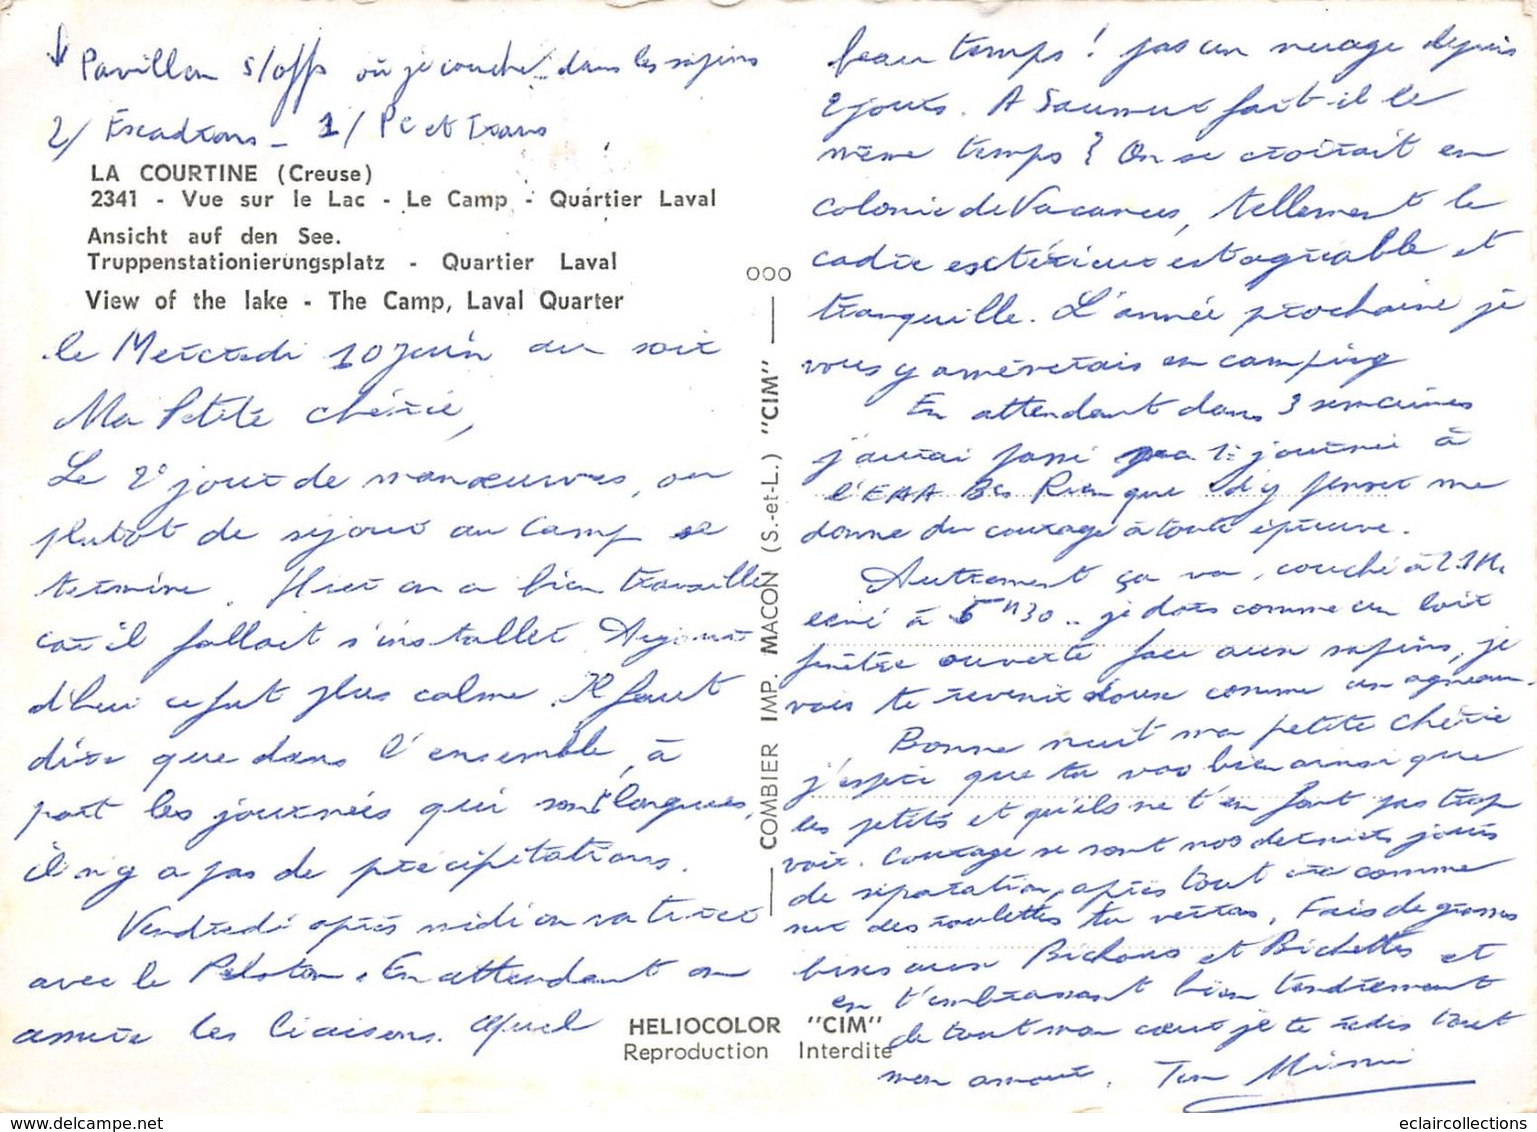 ↓ Pavillon s/offs où je couche.. dans les sapins
2/ Escadrons - 1/ Pc et Trans
LA COURTINE (Creuse)
2341 - Vue sur le Lac - Le Camp - Quartier Laval
Ansicht auf den See.
Truppenstationierungsplatz - Quartier Laval
View of the lake - The Camp, Laval Quarter
le Mercredi 10 juin au soir
Ma Petite chérie,
Le 2° jour de manœuvres, ou
plutôt de séjour au camp se
termine. Hier on a bien travaillé
car il fallait s'installer. Aujour-
d'hui ce fut plus calme. Il faut
dire que dans l'ensemble, à
part les journées qui sont longues,
il n'y a pas de précipitations.
Vendredi après midi on va tirer
avec le Peloton. En attendant on
assure les liaisons. Quel
OOO
COMBIER IMP. MACON (S.-et-L.) "CIM"
HELIOCOLOR "CIM"
Reproduction Interdite
beau temps ! pas un nuage depuis
2 jours. A Saumur fait-il le
même temps ? On se croirait en
colonie de Vacances, tellement le
cadre extérieur est agréable et
tranquille. L'année prochaine je
vous y amènerais en camping
En attendant dans 3 semaines
j'aurai passé ma 1e journée à
l'EAA Bis Rien que d'y penser me
donne du courage à toute épreuve.
Autrement ça va, couché à 21H,
levé à 5H30.. je dors comme un loir
fenêtre ouverte face aux sapins, je
vais te revenir doux comme un agneau.
Bonne nuit ma petite chérie
j'espère que tu vas bien ainsi que
les petits et qu'ils ne t'en font pas trop
voir. Courage ce sont nos derniers jours
de séparation, après tout ira comme
sur des roulettes tu verras. Fais de grosses
bises aux Bichons et Bichettes et
en t'embrassant bien tendrement
de tout mon cœur je te redis tout
mon amour. Ton Mimi
www.delcampe.net
eclaircollections